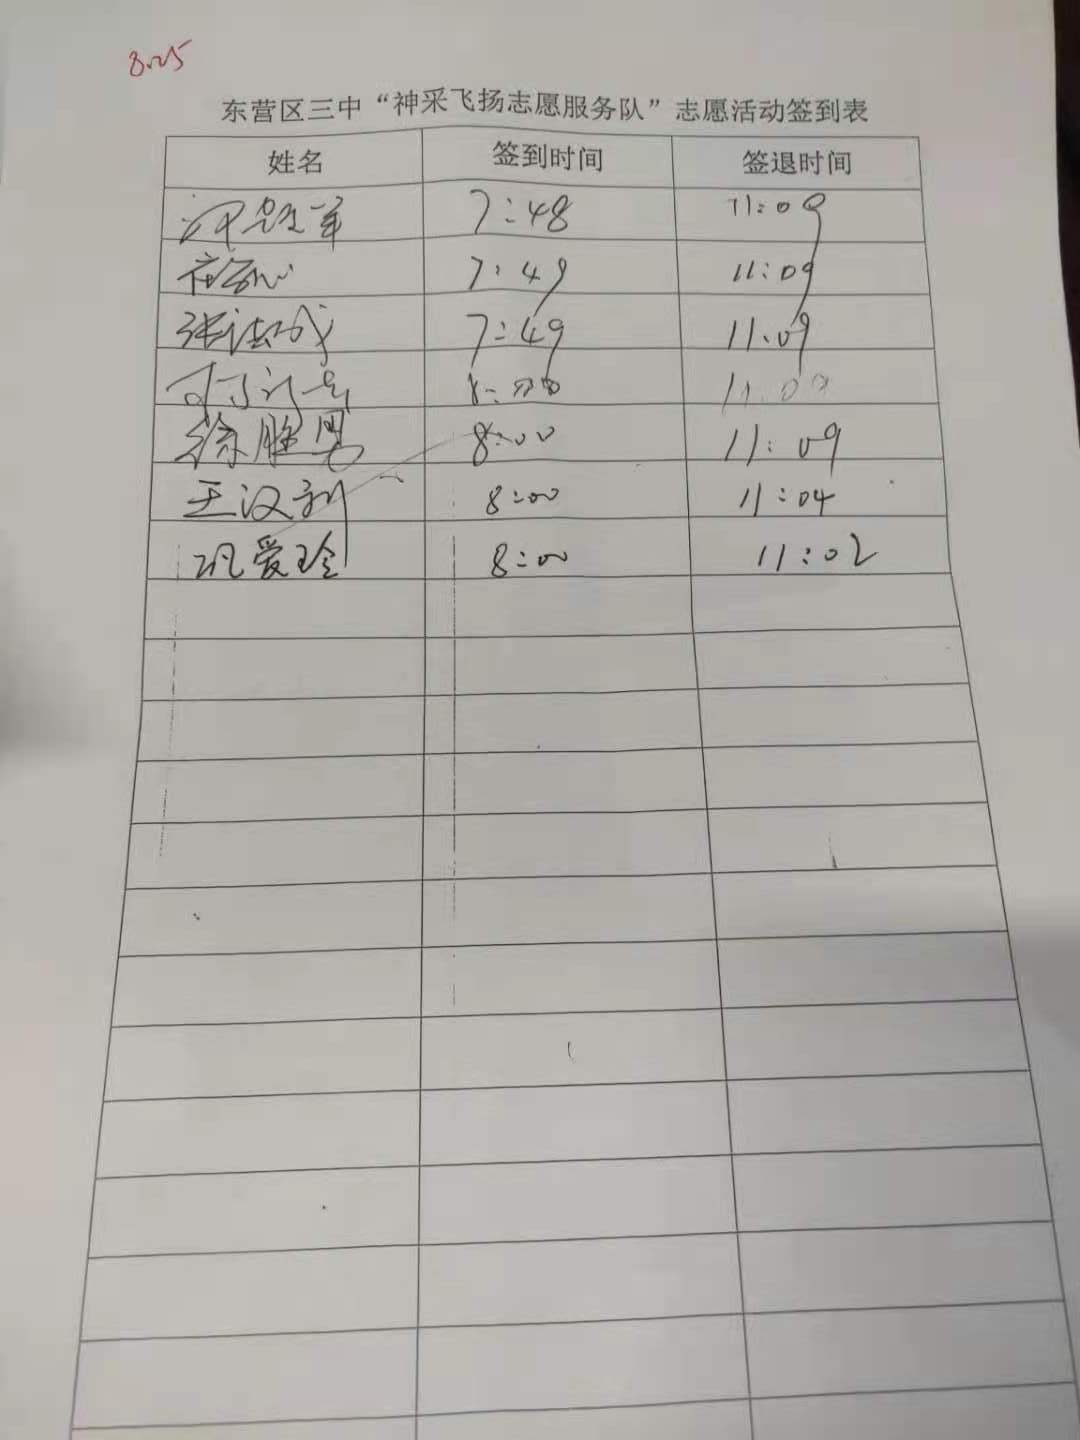 8.25
东营区三中“神采飞扬志愿服务队”志愿活动签到表
姓名 签到时间 签退时间
7:48 11:09
7:49 11:09
张法成 7:49 11.09
8:00 11.09
徐胜男 8:00 11:09
王汉利 8:00 11:04
巩爱玲 8:00 11:02